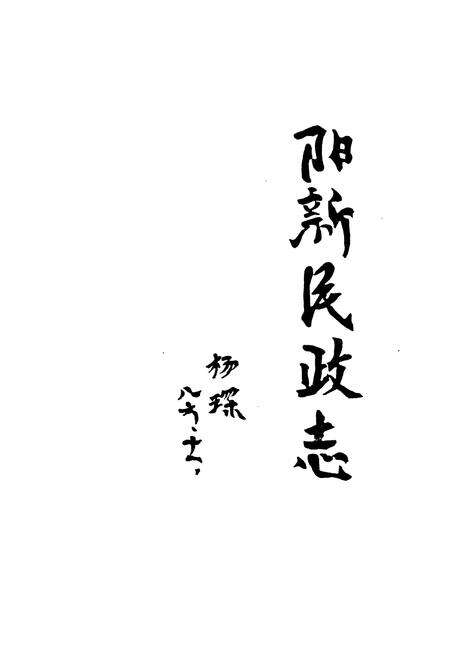 阳新民政志
杨琛
八六、十一、